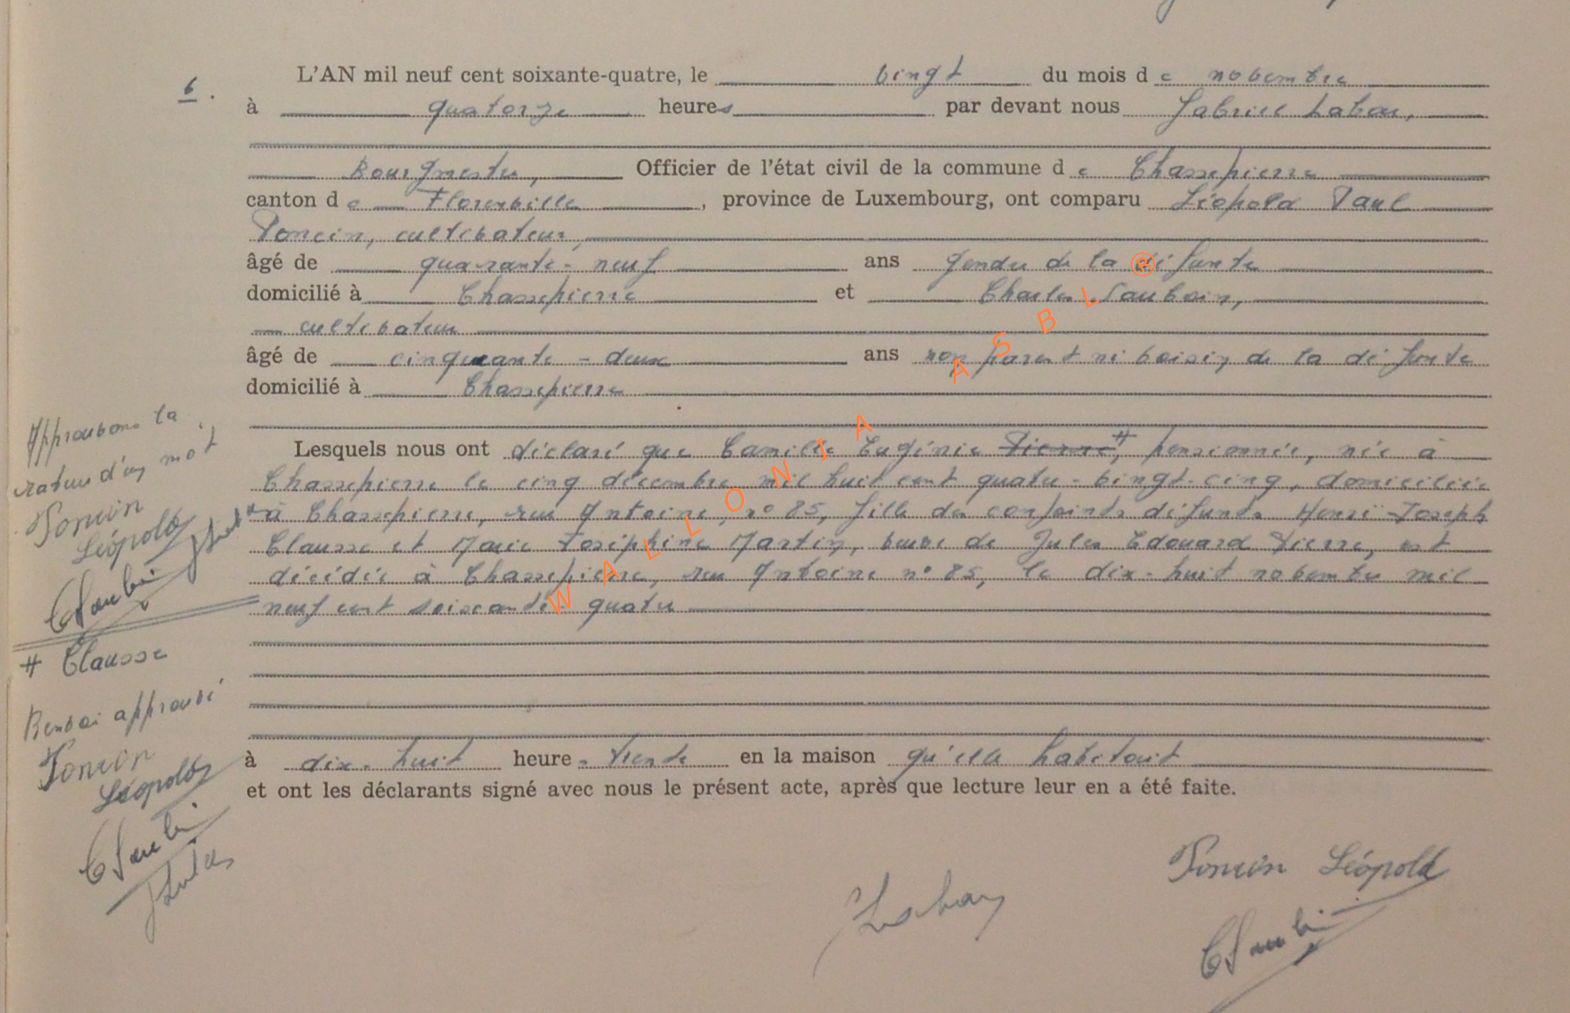 6.
L'AN mil neuf cent soixante-quatre, le vingt du mois de novembre
à quatorze heures par devant nous Gabriel Labou,
Bourgmestre, Officier de l'état civil de la commune de Chassepierre
canton de Florenville, province de Luxembourg, ont comparu Léopold Paul
Poncin, cultivateur,
âgé de quarante-neuf ans gendre de la défunte
domicilié à Chassepierre et Charles Saubain,
cultivateur
âgé de cinquante-deux ans non parent ni voisin de la défunte
domicilié à Chassepierre
Lesquels nous ont déclaré que Camille Eugénie Pierre #, pensionnée, née à
Chassepierre le cinq décembre mil huit cent quatre-vingt-cinq, domiciliée
à Chassepierre, rue Antoine, no 85, fille des conjoints défunts Henri Joseph
Clausse et Marie Joséphine Martin, veuve de Jules Edouard Pierre, est
décédée à Chassepierre, rue Antoine no 85, le dix-huit novembre mil
neuf cent soixante quatre
à dix-huit heures trente en la maison qu'elle habitait
et ont les déclarants signé avec nous le présent acte, après que lecture leur en a été faite.
Approuvons la
rature d'un mot
Poncin
Léopold
# Clausse
Renvoi approuvé
Poncin
Léopold
Poncin Léopold
WALLONIA ASBL ®